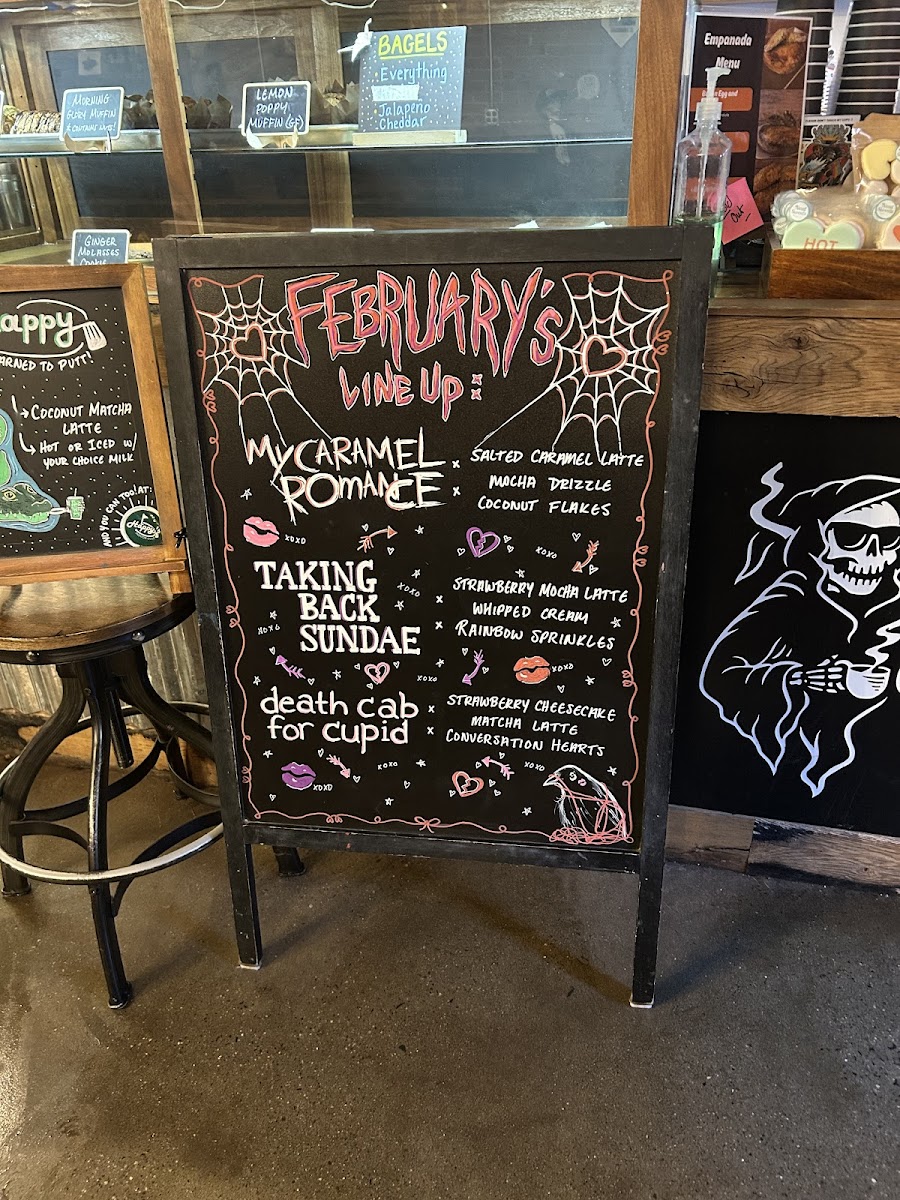 BAGELS
Everything
Jalapeño
Cheddar
MORNING
GLORY MUFFIN
LEMON
POPPY
MUFFIN (GF)
GINGER
MOLASSES
COOKIE
Empanada
Menu
Egg and
Out
HOT
appy
ARNED TO PUTT!
COCONUT MATCHA
LATTE
HOT OR ICED W/
YOUR CHOICE MILK
AND YOU CAN TOO! AT:
Happy's
FEBRUARY'S
LINE UP:
MY CARAMEL
ROMANCE
SALTED CARAMEL LATTE
MOCHA DRIZZLE
COCONUT FLAKES
XOXO
XOXO
TAKING
BACK
SUNDAE
XOXO
XOXO
STRAWBERRY MOCHA LATTE
WHIPPED CREAM
RAINBOW SPRINKLES
XOXO
XOXO
death cab
for cupid
STRAWBERRY CHEESECAKE
MATCHA LATTE
CONVERSATION HEARTS
XOXO
XOXO
XOXO